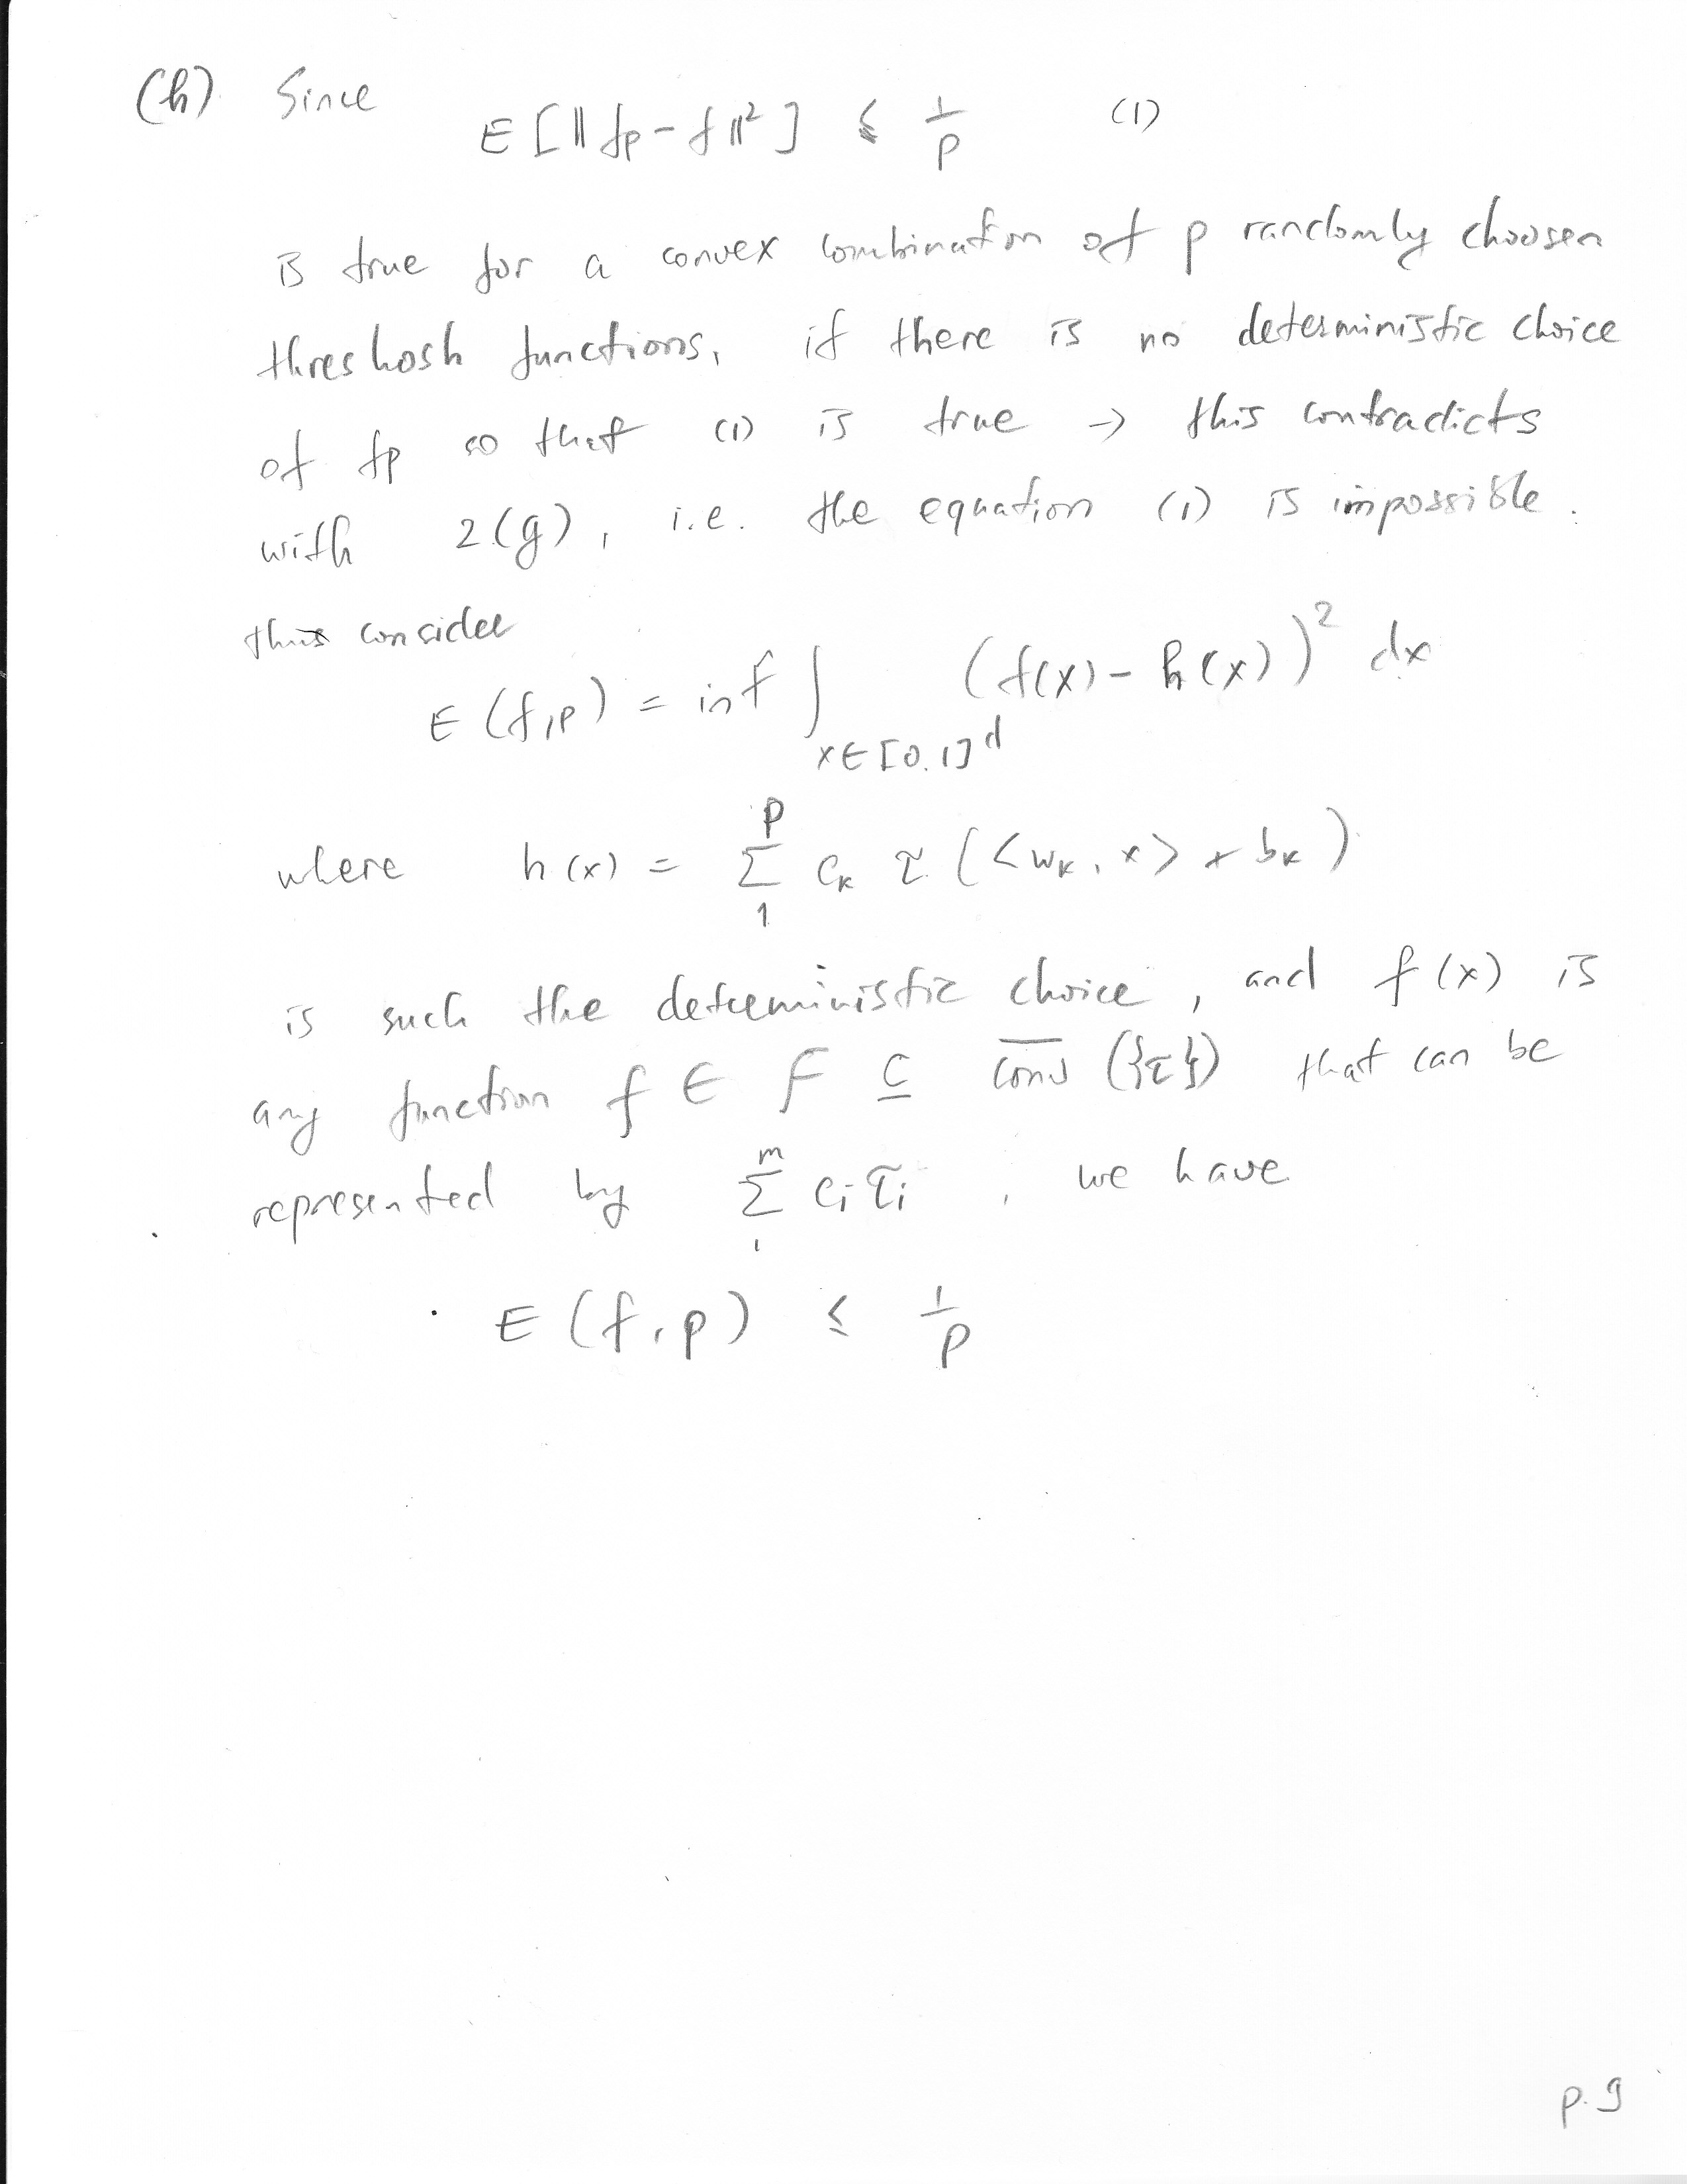 (h) Since
E [ || fp - f ||² ] ≤ 1/p (1)
is true for a convex combination of p randomly choosen
threshosh functions, if there is no deterministic choice
of fp so that (1) is true → this contradicts
with 2(g), i.e. the equation (1) is impossible.
thus consider
E (f,p) = inf ∫_{x∈[0.1]^d} (f(x) - h(x))² dx
where h(x) = Σ_1^p c_k τ (<w_k, x> + b_k)
is such the deterministic choice, and f(x) is
any function f ∈ F ⊆ \overline{conv} ({τ}) that can be
represented by Σ_1^m c_i τ_i , we have
E (f,p) ≤ 1/p
p.9